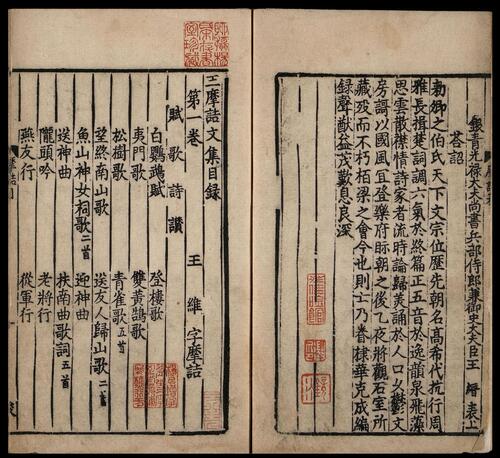 銀青光祿大夫尚書兵部侍郎兼御史大夫臣王 縉 表上
荅詔
勑卿之伯氏天下文宗位歷先朝名髙希代抗行周
雅長揖楚詞調六氣於終篇正五音於逸韻泉飛藻
思雲散襟情詩家者流時論歸美誦於人口久鬱文
房謌以國風宜登樂府眎朝之後乙夜將觀石室所
藏歿而不朽栢梁之會今也則亡乃眷棣華克成編
録聲猷益茂歎息良深
王摩詰文集目録
第一卷 王 維 字摩詰
賦 歌 詩 讃
白鸚鵡賦 登樓歌
夷門歌 雙黄鵠歌
松樹歌 青雀歌五首
望終南山歌 送友人歸山歌二首
魚山神女祠歌二首 迎神曲
送神曲 扶南曲歌詞五首
隴頭吟 老將行
燕友行 從軍行